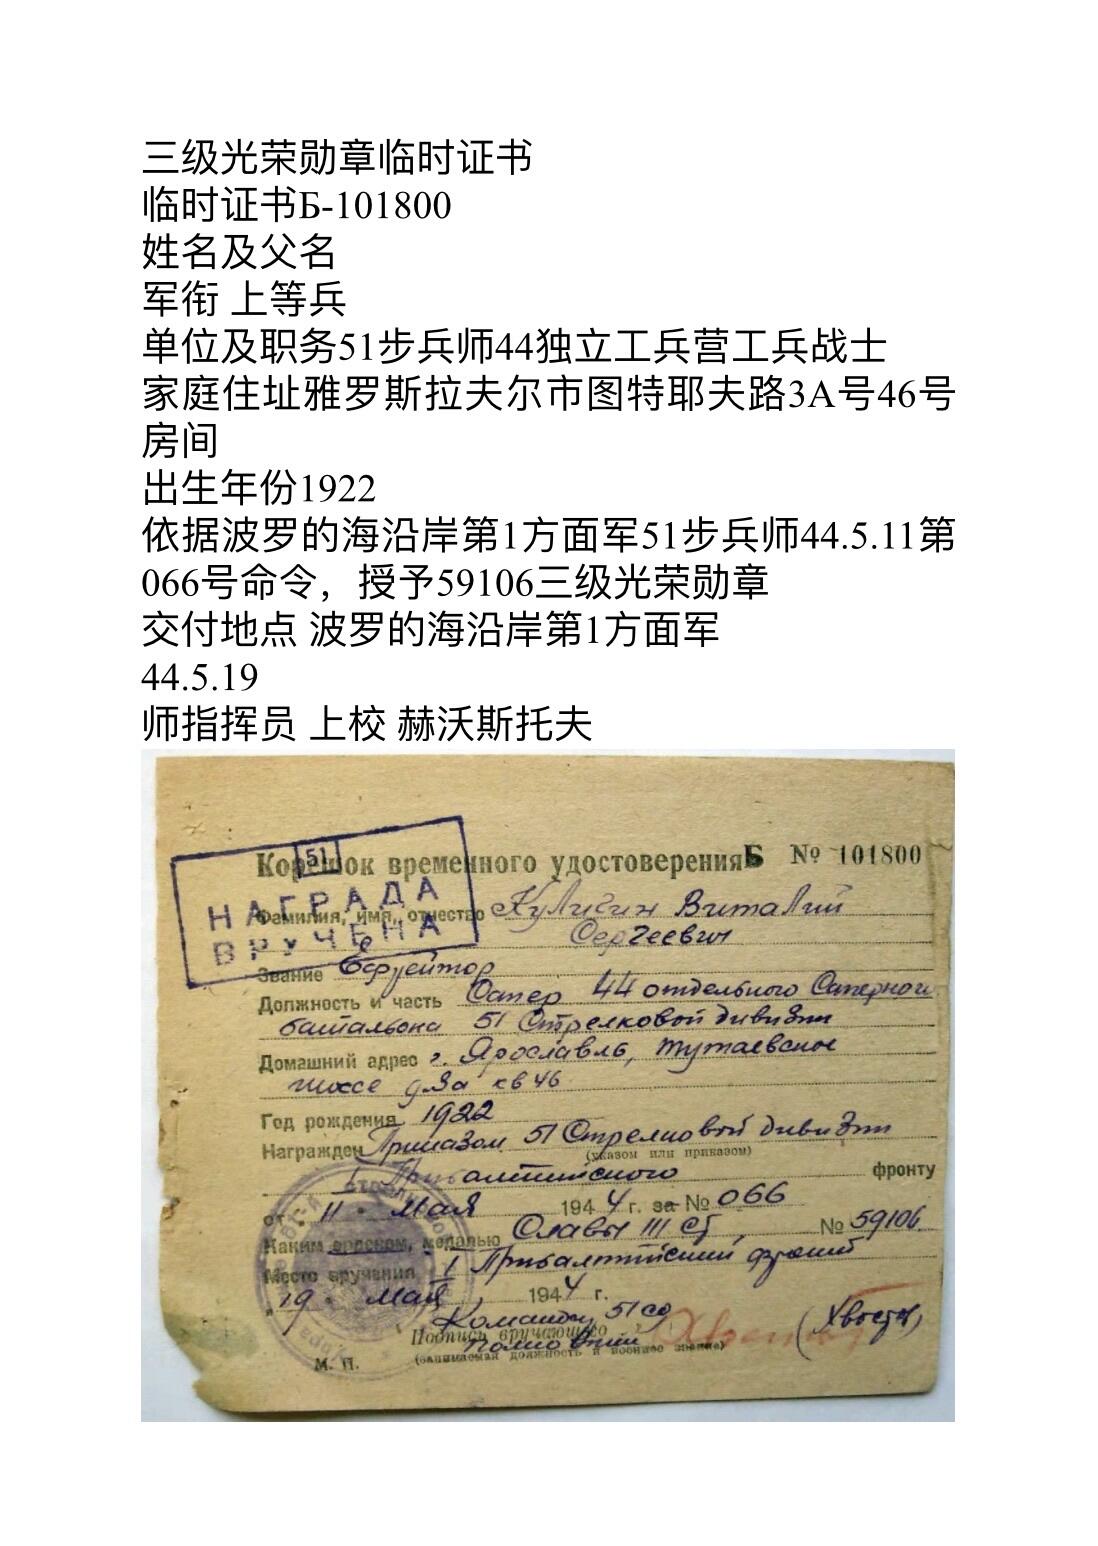 三级光荣勋章临时证书
临时证书Б-101800
姓名及父名
军衔 上等兵
单位及职务51步兵师44独立工兵营工兵战士
家庭住址雅罗斯拉夫尔市图特耶夫路3A号46号
房间
出生年份1922
依据波罗的海沿岸第1方面军51步兵师44.5.11第
066号命令，授予59106三级光荣勋章
交付地点 波罗的海沿岸第1方面军
44.5.19
师指挥员 上校 赫沃斯托夫
51
НАГРАДА
ВРУЧЕНА
Корешок временного удостоверения Б № 101800
Фамилия, имя, отчество Кулигин Виталий
Сергеевич
Звание Ефрейтор
Должность и часть Сапер 44 отдельного Саперного
батальона 51 Стрелковой дивизии
Домашний адрес г. Ярославль, Тутаевское
шоссе д 3а кв 46
Год рождения 1922
Награжден Приказом 51 Стрелковой дивизии
(указом или приказом)
1 Прибалтийского фронту
от 11 Мая 1944 г. за № 066
Каким орденом, медалью Славы III ст, № 59106
Место вручения 1 Прибалтийский фронт
"19" Мая 1944 г.
Командир 51 сд
Подпись вручающего
(занимаемая должность и военное звание)
М. П.